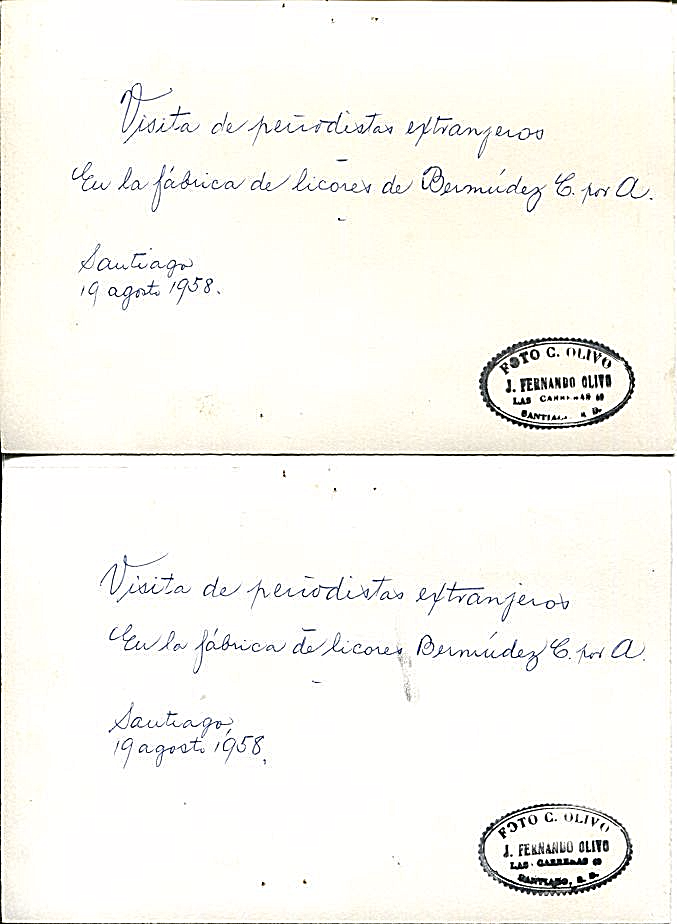 Visita de periodistas extranjeros
En la fábrica de licores de Bermúdez C. por A.
Santiago
19 agosto 1958.
FOTO C. OLIVO
J. FERNANDO OLIVO
LAS CARRERAS
SANTIAGO, R. D.
Visita de periodistas extranjeros
En la fábrica de licores Bermúdez C. por A.
Santiago,
19 agosto 1958.
FOTO C. OLIVO
J. FERNANDO OLIVO
LAS CARRERAS
SANTIAGO, R. D.